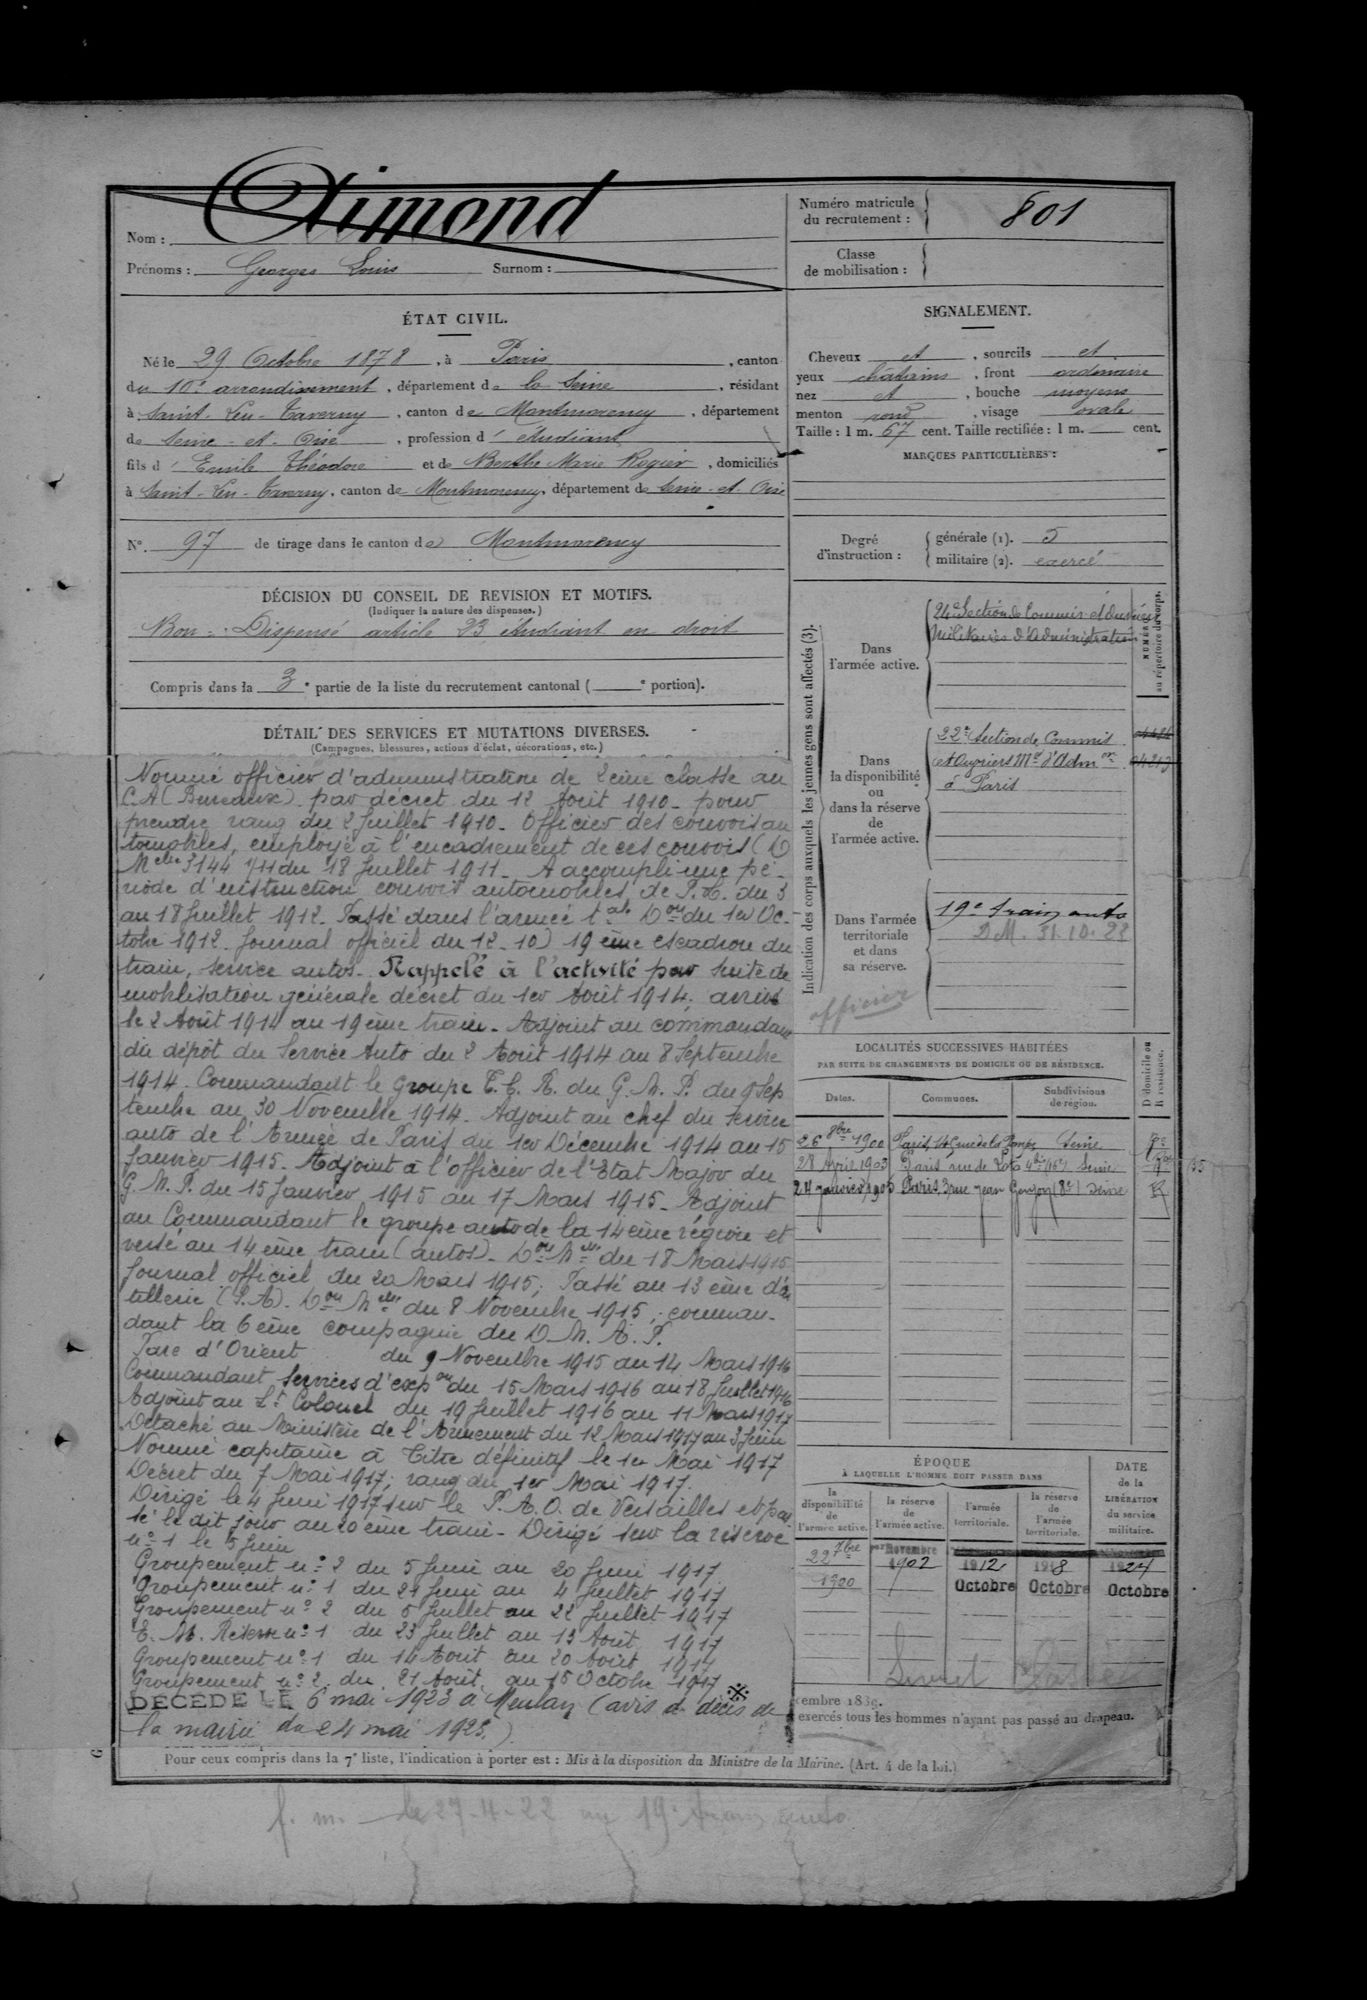 Nom : Aimond
Prénoms : Georges Louis Surnom :
Numéro matricule
du recrutement : 801
Classe
de mobilisation :
ÉTAT CIVIL.
Né le 29 Octobre 1878, à Paris, canton
du 10e arrondissement, département de la Seine, résidant
à Saint-Leu-Taverny, canton de Montmorency, département
de Seine-et-Oise, profession d'étudiant
fils d'Emile Théodore et de Berthe Marie Rogier, domiciliés
à Saint-Leu-Taverny, canton de Montmorency, département de Seine-et-Oise
N° 97 de tirage dans le canton de Montmorency
SIGNALEMENT.
Cheveux et, sourcils et
yeux châtains, front ordinaire
nez et, bouche moyens
menton rond, visage ovale
Taille : 1 m. 67 cent. Taille rectifiée : 1 m. cent.
MARQUES PARTICULIÈRES :
Degré
d'instruction :
générale (1). 5
militaire (2). exercé
DÉCISION DU CONSEIL DE REVISION ET MOTIFS.
(Indiquer la nature des dispenses.)
Bon : Dispensé article 23 étudiant en droit
Compris dans la 3e partie de la liste du recrutement cantonal ( e portion).
DÉTAIL DES SERVICES ET MUTATIONS DIVERSES.
(Campagnes, blessures, actions d'éclat, décorations, etc.)
Nommé officier d'administration de 2eme classe au
C.A (Bureaux) par décret du 12 Août 1910 - pour
prendre rang du 2 Juillet 1910 - Officier des convois au
tomobiles, employé à l'encadrement de ces convois (D
Melle 3144 1/11 du 18 Juillet 1911 - A accompli une pé-
riode d'instruction convois automobiles de P.L. du 3
au 18 Juillet 1912. Passé dans l'armée tale Don du 1er Oc-
tobre 1912. Journal officiel du 12-10) 19ème escadron du
train, service autos - Rappelé à l'activité par suite de
mobilisation générale décret du 1er Août 1914, arrivé
le 2 Août 1914 au 19ème train - Adjoint au commandant
du dépôt du Service Auto du 2 Août 1914 au 8 Septembre
1914. Commandant le groupe du G.M.P. du 9 Sep
tembre au 30 Novembre 1914. Adjoint au chef du service
auto de l'Armée de Paris du 1er Décembre 1914 au 15
Janvier 1915. Adjoint à l'officier de l'Etat Major du
G.M.P. du 15 Janvier 1915 au 17 Mars 1915 - Adjoint
au Commandant le groupe auto de la 14eme région et
versé au 14ème train (autos) - Don Melle du 18 Mars 1915
Journal officiel du 20 Mars 1915; Passé au 13eme d'ar
tillerie (S.A). Don Melle du 8 Novembre 1915; comman-
dant la 6ème compagnie du D.M.A.P.
Parc d'Orient du 9 Novembre 1915 au 14 Mars 1916
Commandant Services d'expon du 15 Mars 1916 au 18 Juillet 1916
Adjoint au Lt Colonel du 19 Juillet 1916 au 11 Mars 1917
Détaché au Ministère de l'Armement du 12 Mars 1917 au 3 Juin
Nommé capitaine à Titre définitif le 1er Mai 1917
Décret du 7 Mai 1917; rang du 1er Mai 1917.
Dirigé le 4 Juin 1917 sur le P.A.O. de Versailles et pas
sé le dit jour au 20ème train - Dirigé sur la réserve
n° 1 le 5 Juin
Groupement n° 2 du 5 Juin au 20 Juin 1917
Groupement n° 1 du 21 Juin au 4 Juillet 1917
Groupement n° 2 du 5 Juillet au 22 Juillet 1917
E.M. Réserve n° 1 du 23 Juillet au 13 Août 1917
Groupement n° 1 du 14 Août au 20 Août 1917
Groupement n° 2 du 21 Août au 15 Octobre 1917
DÉCÉDÉ LE 6 mai 1923 à Meulan (avis de décès de
la mairie du 24 mai 1923.)
Indication des corps auxquels les jeunes gens sont affectés (3).
Dans
l'armée active.
24e Section de Commis et Ouvriers
Militaires d'Administration
NUMÉROS
au répertoire du corps.
Dans
la disponibilité
ou
dans la réserve
de
l'armée active.
22e Section de Commis
et Ouvriers Mres d'Admon
à Paris
Dans l'armée
territoriale
et dans
sa réserve.
19e train auto
DM. 31.10.23
officier
LOCALITÉS SUCCESSIVES HABITÉES
PAR SUITE DE CHANGEMENTS DE DOMICILE OU DE RÉSIDENCE.
Dates. Communes. Subdivisions de région. D domicile ou R résidence.
26 8bre 1900 Paris, rue de la Pompe Seine
28 Avril 1903 Paris rue de Seine
24 janvier 1905 Paris, 3 rue Jean Goujon (8e) Seine R
ÉPOQUE
À LAQUELLE L'HOMME DOIT PASSER DANS
DATE
de la
LIBÉRATION
du service
militaire.
la disponibilité de l'armée active.
la réserve de l'armée active.
l'armée territoriale.
la réserve de l'armée territoriale.
22 7bre 1900
1er Novembre 1902
1912 Octobre
1918 Octobre
1924 Octobre
Livret
cembre 1889.
exercés tous les hommes n'ayant pas passé au drapeau.
Pour ceux compris dans la 7e liste, l'indication à porter est : Mis à la disposition du Ministre de la Marine. (Art. 4 de la loi.)
f. m. le 27-4-22 au 19e train auto